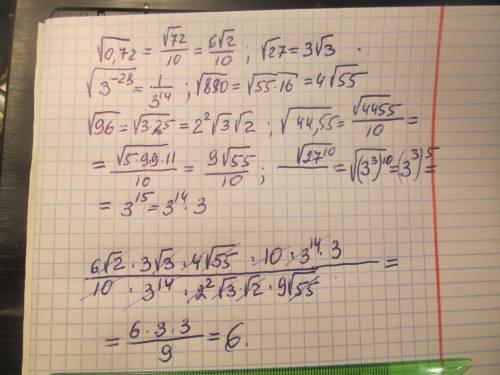 √0,72 = √72/10 = 6√2/10 ; √27 = 3√3 .
√3^-28 = 1/3^14 ; √880 = √55·16 = 4√55
√96 = √3·2^5 = 2^2√3√2 ; √44,55 = √4455/10 =
= √5·9·9·11/10 = 9√55/10 ; √27^10 = √(3^3)^10 = (3^3)^5 =
= 3^15 = 3^14·3
6√2 · 3√3 · 4√55 · 10 · 3^14 · 3 / 10 · 3^14 · 2^2√3·√2 · 9√55 =
= 6·3·3/9 = 6.